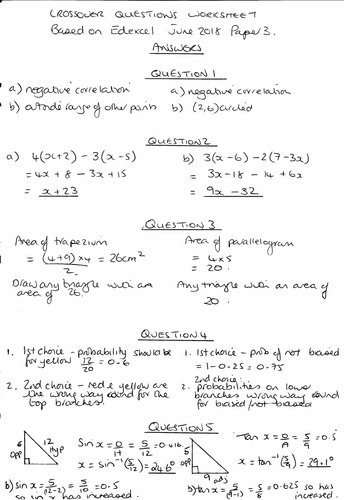 CROSSOVER QUESTIONS WORKSHEET
Based on Edexcel June 2018 Paper 3.
ANSWERS
QUESTION 1
a) negative correlation a) negative correlation
b) outside range of other points b) (2,6) circled
QUESTION 2
a) 4(x+2) - 3(x-5) b) 3(x-6) - 2(7-3x)
= 4x + 8 - 3x + 15 = 3x - 18 - 14 + 6x
= x + 23 = 9x - 32
QUESTION 3
Area of trapezium Area of parallelogram
= (4+9) x 4 = 26cm² = 4 x 5
2 = 20.
Draw any triangle with an Any triangle with an area of
area of 26. 20.
QUESTION 4
1. 1st choice - probability should be 1. 1st choice - prob of not biased
for yellow 12/20 = 0.6 = 1 - 0.25 = 0.75
2. 2nd choice - red & yellow are 2. 2nd choice:
the wrong way round for the probabilities on lower
top branches. branches wrong way round
for biased/not biased
QUESTION 5
5 opp 12 hyp Sin x = o/h = 5/12 = 0.416 5 opp 9 adj tan x = o/a = 5/9 = 0.5
x = sin⁻¹(5/12) = 24.6° x = tan⁻¹(5/9) = 29.1°
b) sin x = 5/(12-2) = 5/10 = 0.5 b) tan x = 5/(9-1) = 5/8 = 0.625 so has
so sin x has increased. increased.